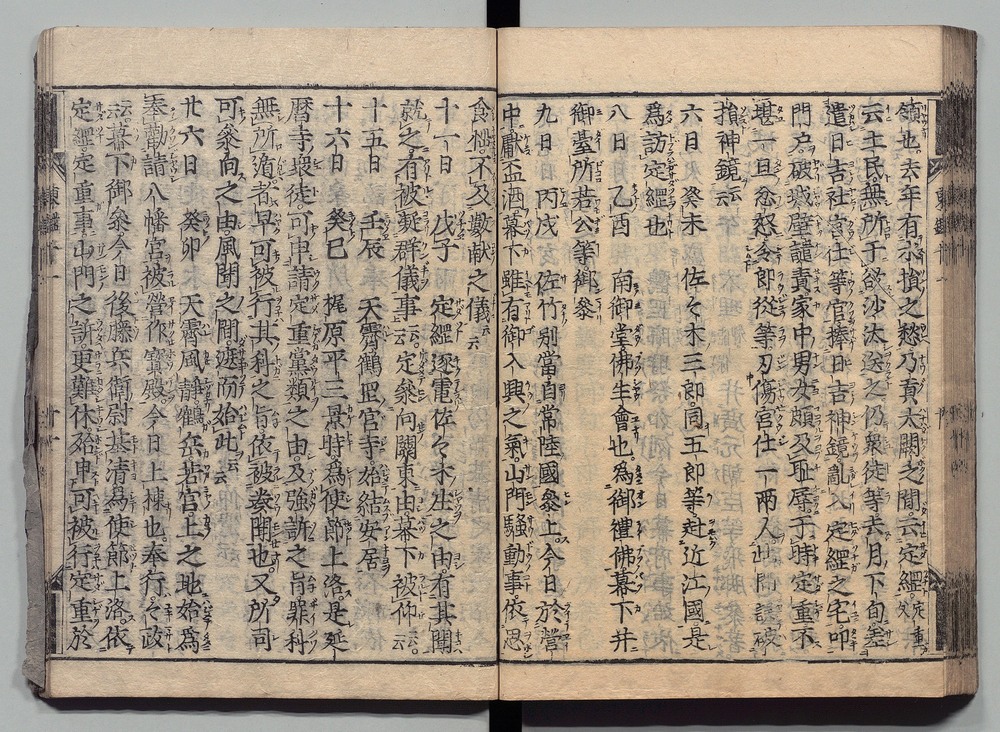 領也去年有水損之愁乃貢太闕之間云定經
云土民無所于欲沙汰送之仍衆徒等去月下旬差
遣日吉社宮仕等官捧日吉神鏡亂入定經之宅叩
門戸破城壁譴責家中男女頗及耻辱于時定重不
堪一旦忿怒令郎從等刄傷宮仕一兩人此間誤破
損神鏡云云
六日 癸未 佐々木三郎同五郎等赴近江國是
爲訪定經也
八日 乙酉 南御堂佛生會也爲御禮佛幕下并
御臺所若公等御參
九日 丙戌 佐竹別當自常陸國參上今日於營
中獻盃酒幕下雖有御入興之氣山門騷動事依思
食悩不及數獻之儀云云
十一日 戊子 定經逐電佐々木庄之由有其聞
就之有被凝群儀事云云定參向關東由幕下被仰云云
十五日 壬辰 天霽鶴罡宮寺始結安居
十六日 癸巳 梶原平三景時爲使節上洛是延
曆寺衆徒可申請定重黨類之由及強訴之旨罪科
無所遁者早可被行其科之旨依被奏聞也又所司
可參向之由風聞之間遮而始此云云
廿六日 癸卯 天霽風靜鶴岳若宮上之地始爲
奉勸請八幡宮被營作寳殿今日上棟也奉行之政
云云幕下御參今日後藤兵衛尉基清爲使節上洛依
定經定重事山門之訴更難休殆申可被行定重於
東鑑十一